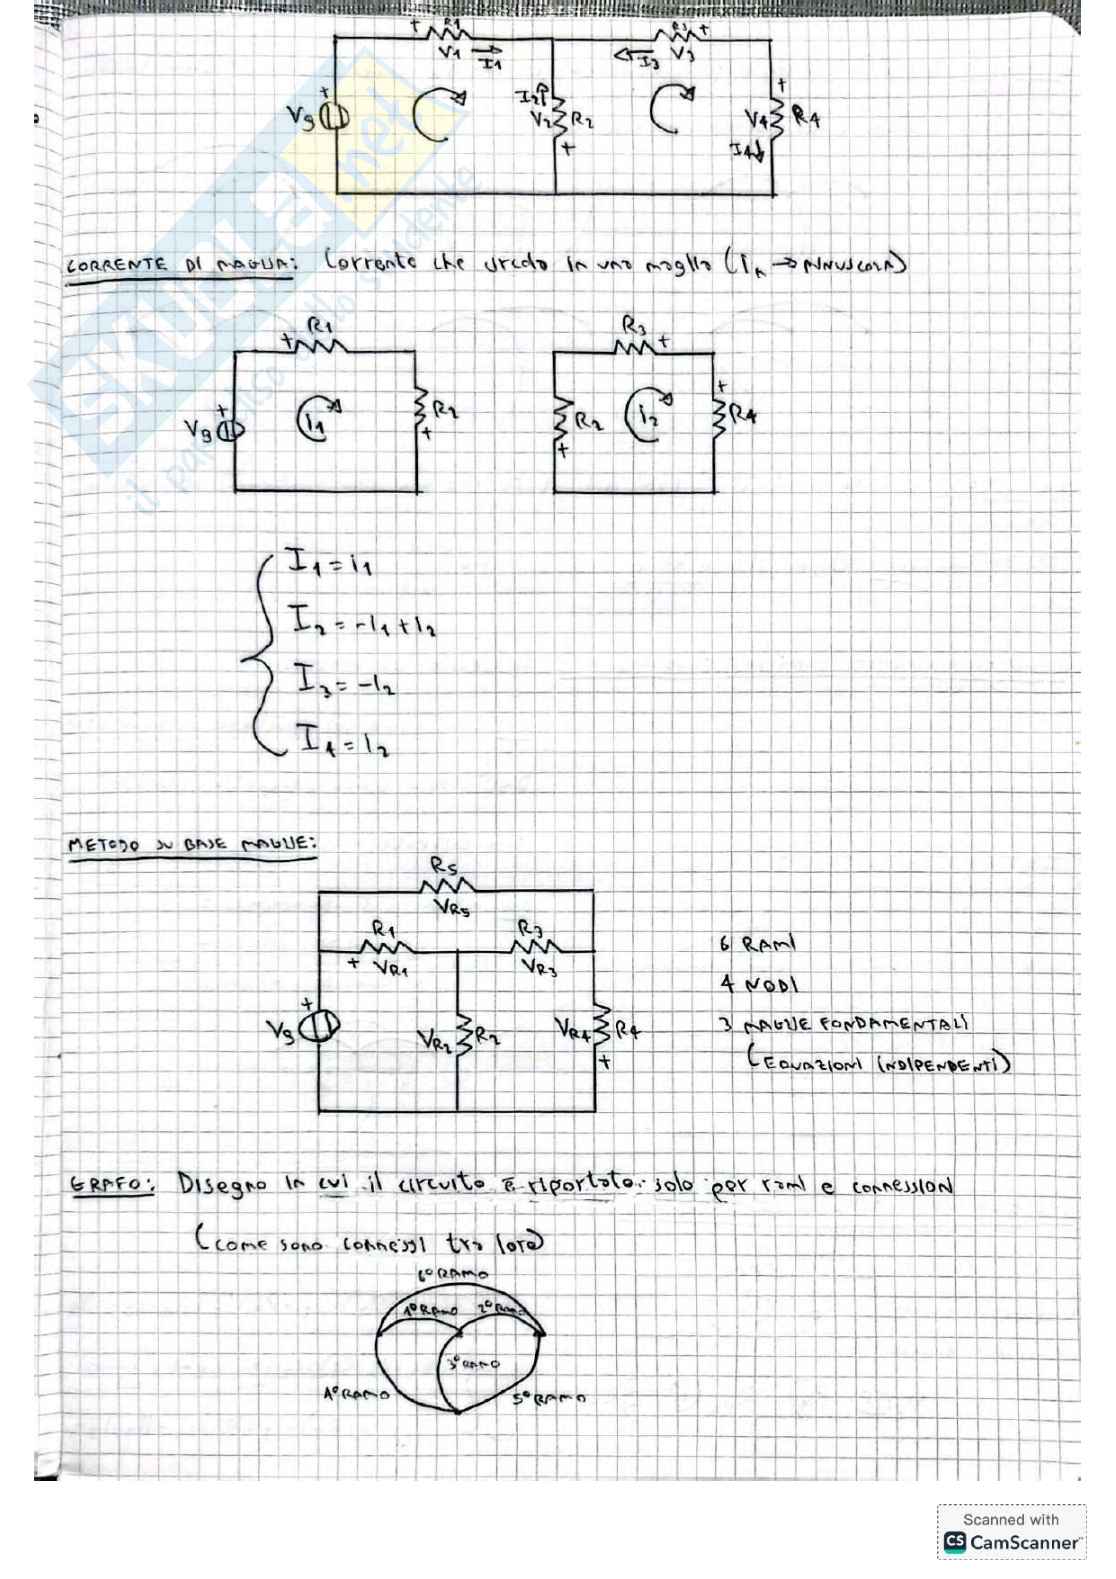 + R1
V1 I1
R3 +
I3 V3
Vg +
I2
V2 R2
+
+
V4 R4
I4
CORRENTE DI MAGLIA: Corrente che circola in una maglia (In → MINUSCOLA)
R1
+
Vg +
i1
R2
+
R3
+
R2
+
i2
+
R4
I1 = i1
I2 = -i1 + i2
I3 = -i2
I4 = i2
METODO SU BASE MAGLIE:
R5
VR5
R1
+ VR1
R3
VR3
Vg +
VR2 R2
VR4 R4
+
6 RAMI
4 NODI
3 MAGLIE FONDAMENTALI
(EQUAZIONI INDIPENDENTI)
GRAFO: Disegno in cui il circuito è riportato solo per rami e connessioni
(come sono connessi tra loro)
6° RAMO
1° RAMO 2° RAMO
3° RAMO
4° RAMO
5° RAMO
SKUOLA.net
il paradiso dello studente
Scanned with
CS CamScanner